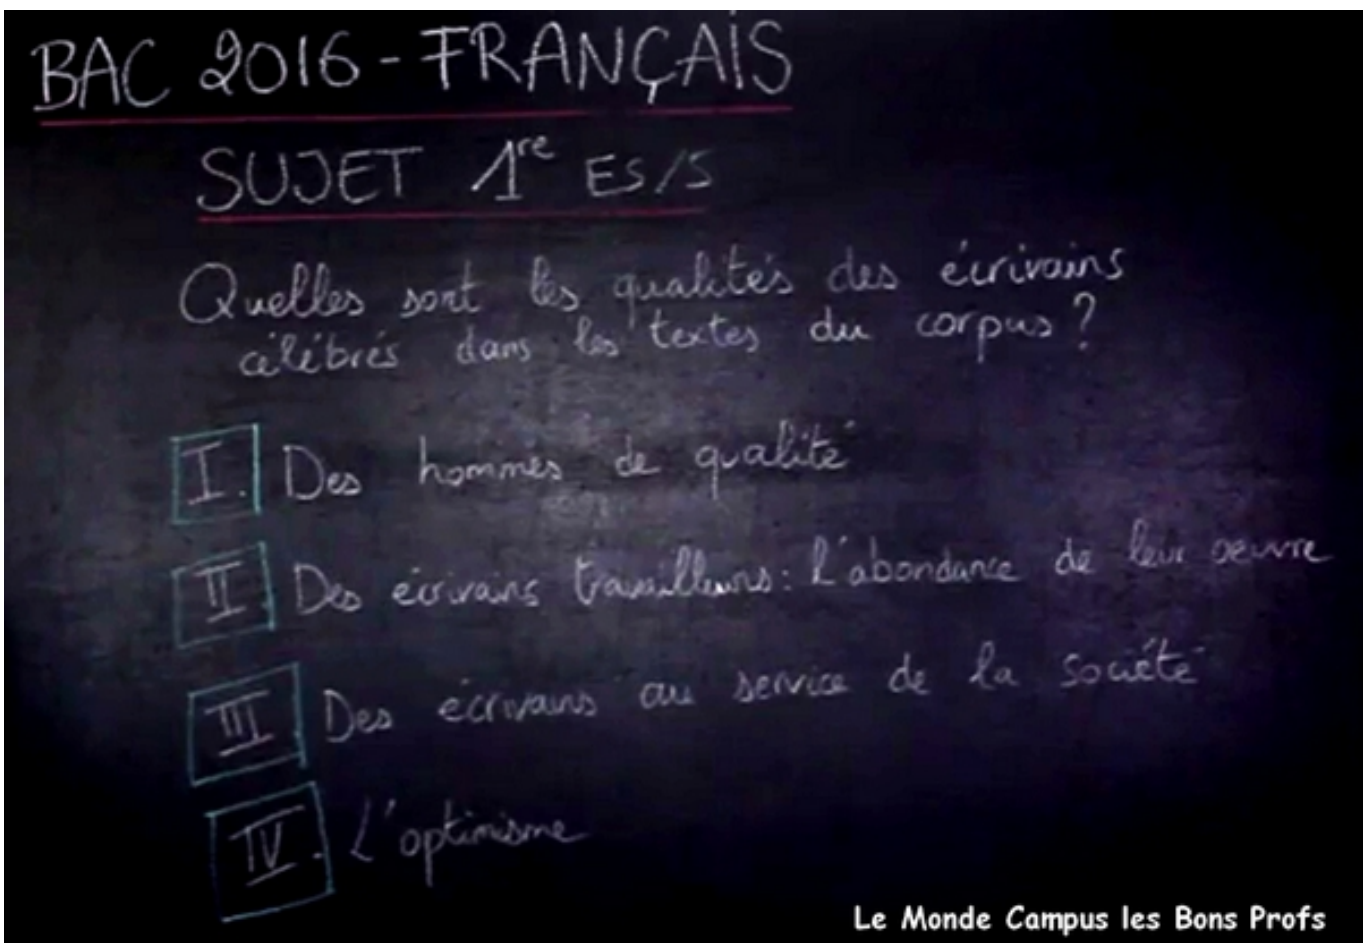 BAC 2016 - FRANÇAIS
SUJET 1re ES/S
Quelles sont les qualités des écrivains
célébrés dans les textes du corpus ?
I. Des hommes de qualité
II. Des écrivains travailleurs : l'abondance de leur oeuvre
III. Des écrivains au service de la société
IV. L'optimisme
Le Monde Campus les Bons Profs